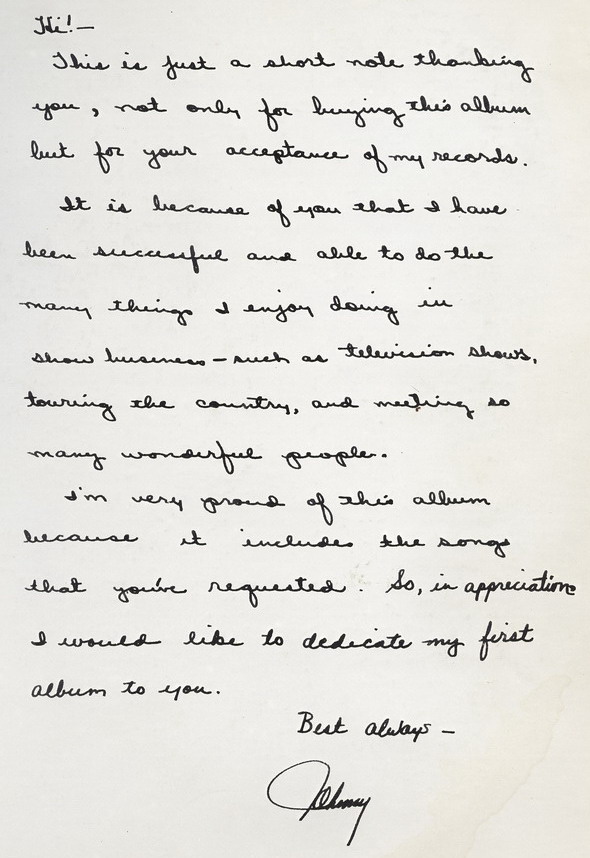 Hi!—
This is just a short note thanking
you, not only for buying this album
but for your acceptance of my records.
It is because of you that I have
been successful and able to do the
many things I enjoy doing in
show business—such as television shows,
touring the country, and meeting so
many wonderful people.
I'm very proud of this album
because it includes the songs
that you've requested. So, in appreciation
I would like to dedicate my first
album to you.
Best always—
Johnny